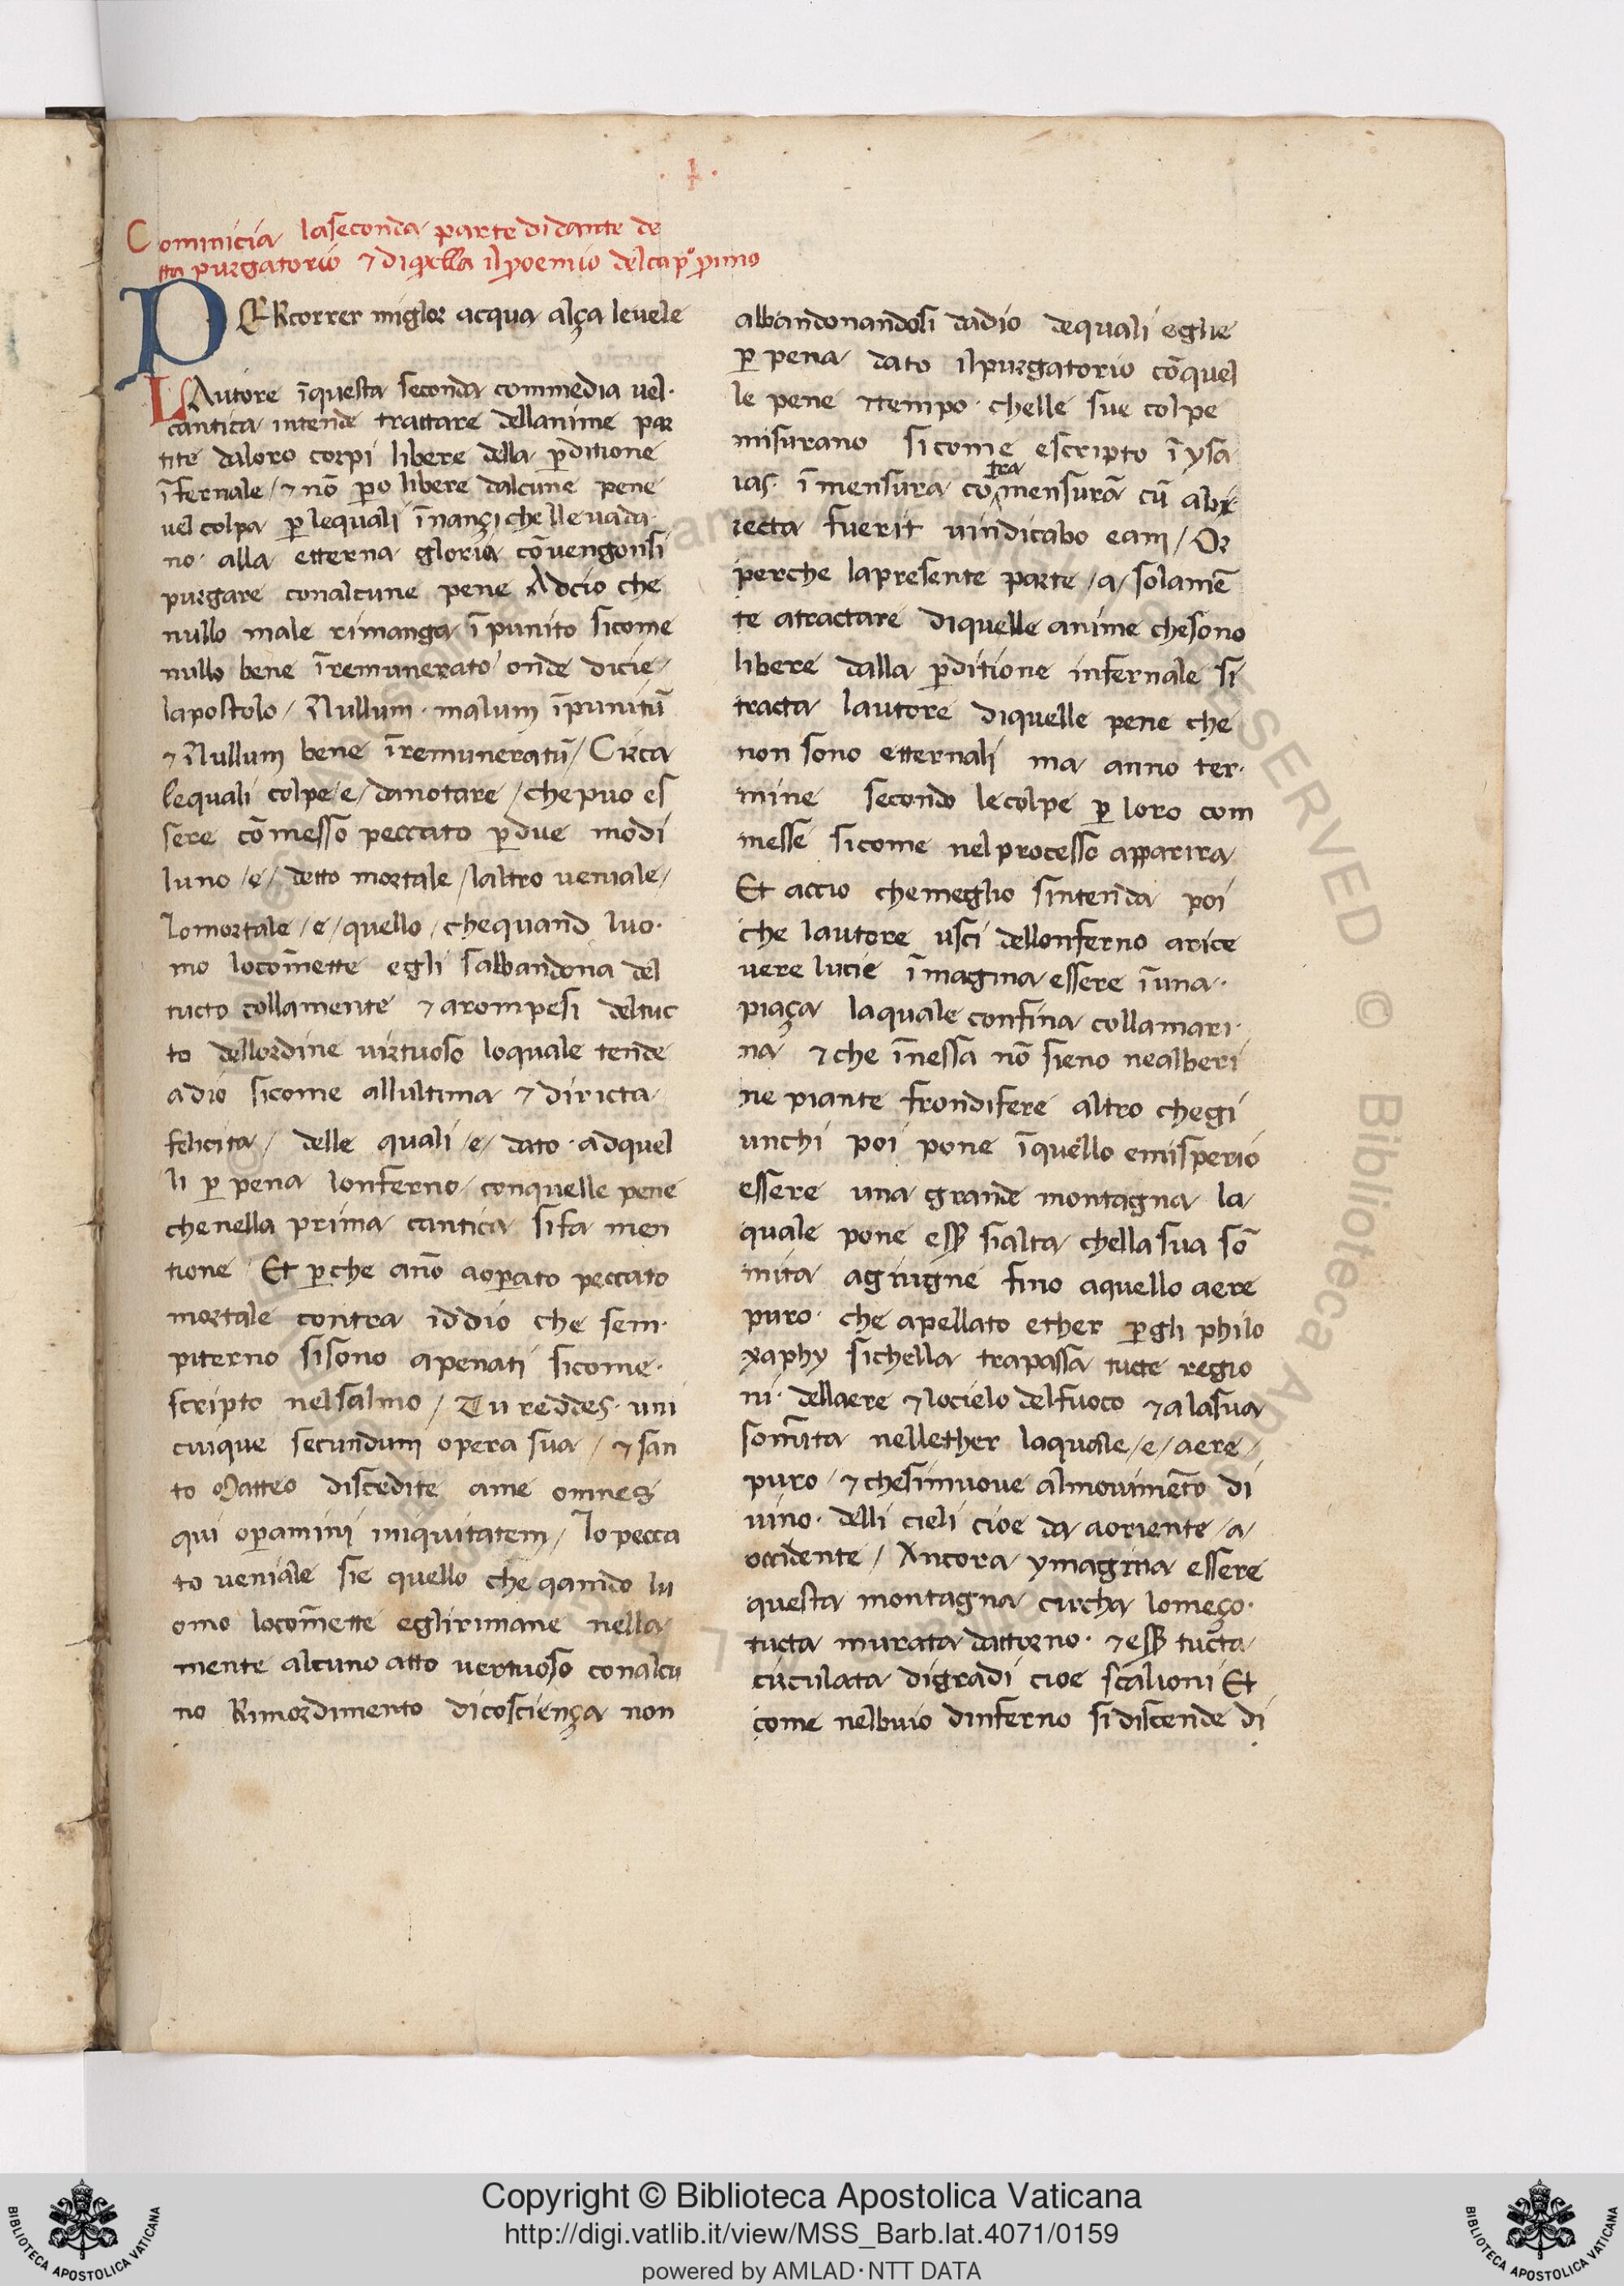 Cominicia laseconda parte di dante de
tta purgatorio ⁊ diq̃lla il p̃oemio del cap̊ p̃imo
PERcorrer miglor acqua alça levele
LAutore ĩquesta seconda commedia vel·
cantica intende trattare dellanime par
tite daloro corpi libere della ꝑditione
ĩfernale / ⁊ nõ ꝑo libere dalcune pene
vel colpa ꝑ lequali ĩnançi chelle vada
no· alla etterna gloria cõvengonsi
purgare conalcune pene Adcio che
nullo male rimanga ĩpunito sicome
nullo bene ĩremunerato onde dicie /
lapostolo / Nullum · malum ĩpunitũ
⁊ Nullum bene ĩremuneratũ / Circa
lequali colpe /e/ danotare / chepuo es
sere cõmesso peccato ꝑdue modi
luno /e/ detto mortale / laltro veniale /
lo mortale /e/ quello / chequand luo·
mo locõmette egli salbandona del
tucto collamente ⁊ arompesi deltuc
to dellordine virtuoso loquale tende
adio sicome allultima ⁊ diricta
felicita / delle quali /e/ dato · adquel
li ꝑ pena lonferno / conquelle pene
chenella prima cantica sifa men
tione Et ꝑche ano aoꝑato peccato
mortale contra iddio che sem·
piterno sisono apenati sicome·
scripto nelsalmo / Tu reddes· uni
cuique secundum opera sua / ⁊ san
to Matteo discedite ame omnes
qui oꝑamini iniquitatem / lo pecca
to veniale sie quello che qando lu
omo locõmette eglirimane nella
mente alcuno atto vertuoso conalcu
no Rimordimento dicosciença non
albandonandosi dadio dequali eglie
ꝑ pena dato ilpurgatorio cõquel
le pene ⁊tempo · chelle sue colpe
misurano sicome escripto ĩ ysa
ias· ĩ mensura cõtra mensurã cũ abi
recta fuerit vindicabo eam / Or
perche lapresente parte /a/ solamẽ
te atractare diquelle anime chesono
libere dalla ꝑditione infernale si
tracta lautore diquelle pene che
non sono etternali ma anno ter·
mine secondo lecolpe ꝑ loro com
messe sicome nelprocesso apparira
Et accio chemeglio sintenda poi
che lautore usci dellonferno arice
vere lucie ĩmagina essere ĩuna·
piaça laquale confina collamari·
na ⁊ che ĩnessa nõ sieno nealberi
ne piante frondifere altro chegi
unchi poi pone ĩquello emisperio
essere una grande montagna la
quale pone esẜ sialta chella sua sõ
mita agiugne fino aquello aere
puro· che apellato ether ꝑgli philo
xaphy sichella trapassa tucte regio
ni· dellaere ⁊ locielo delfuoco ⁊ a lasua
som̃ita nellether loquale /e/ aere /
puro / ⁊ chesimuove almovimẽto di
vino· delli cieli cioe da aoriente /a/
occidente / Ancora ymagina essere
questa montagna circha lomeço·
tucta murata dattorno· ⁊ esẜ tucta
circulata digradi cioe scalioni Et
come nelbuio dinferno si discende di
Copyright © Biblioteca Apostolica Vaticana
http://digi.vatlib.it/view/MSS_Barb.lat.4071/0159
powered by AMLAD·NTT DATA
BIBLIOTECA APOSTOLICA VATICANA
BIBLIOTECA APOSTOLICA VATICANA